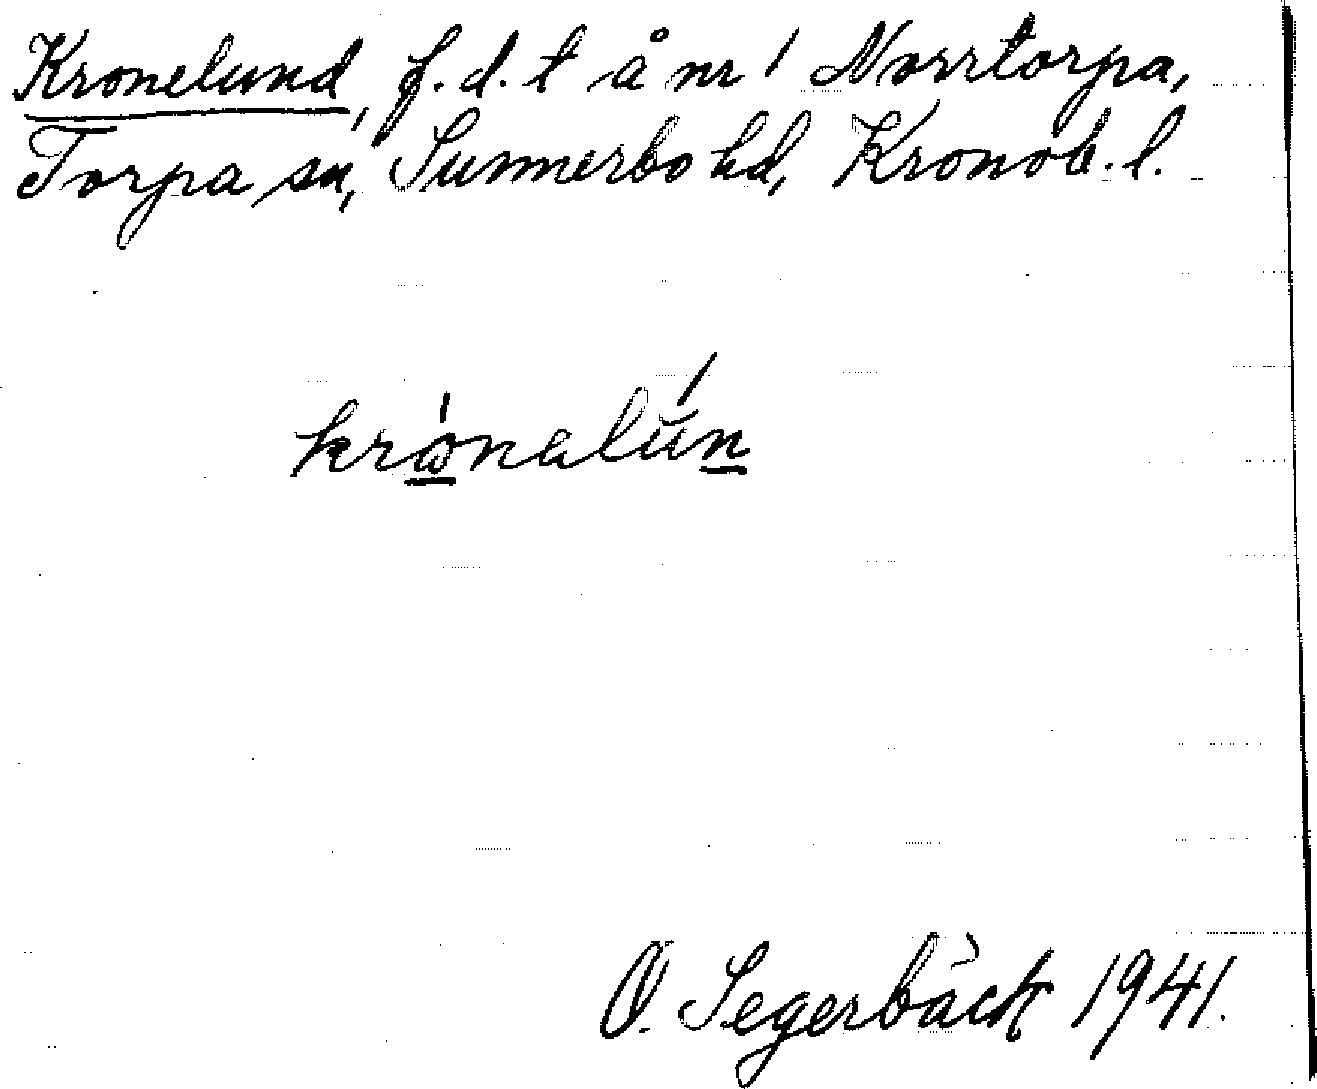 Kronelund, f.d. t å nr 1 Norrtorpa,
Torpa sn, Sunnerbo hd, Kronob. l.
krònalún
O. Segerbäck 1941.